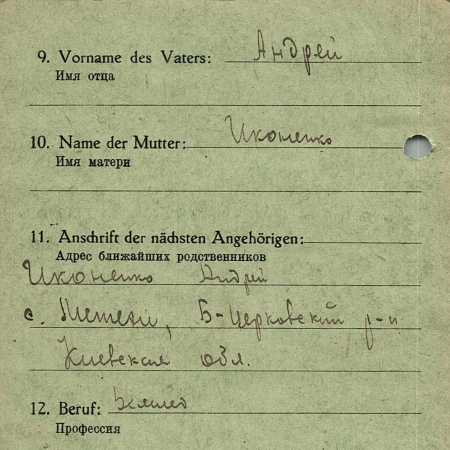 9. Vorname des Vaters: Андрей
Имя отца
10. Name der Mutter: Иконенко
Имя матери
11. Anschrift der nächsten Angehörigen:
Адрес ближайших родственников
Иконенко Андрей
с. Б-Церковский р-н
Киевская обл.
12. Beruf:
Профессия